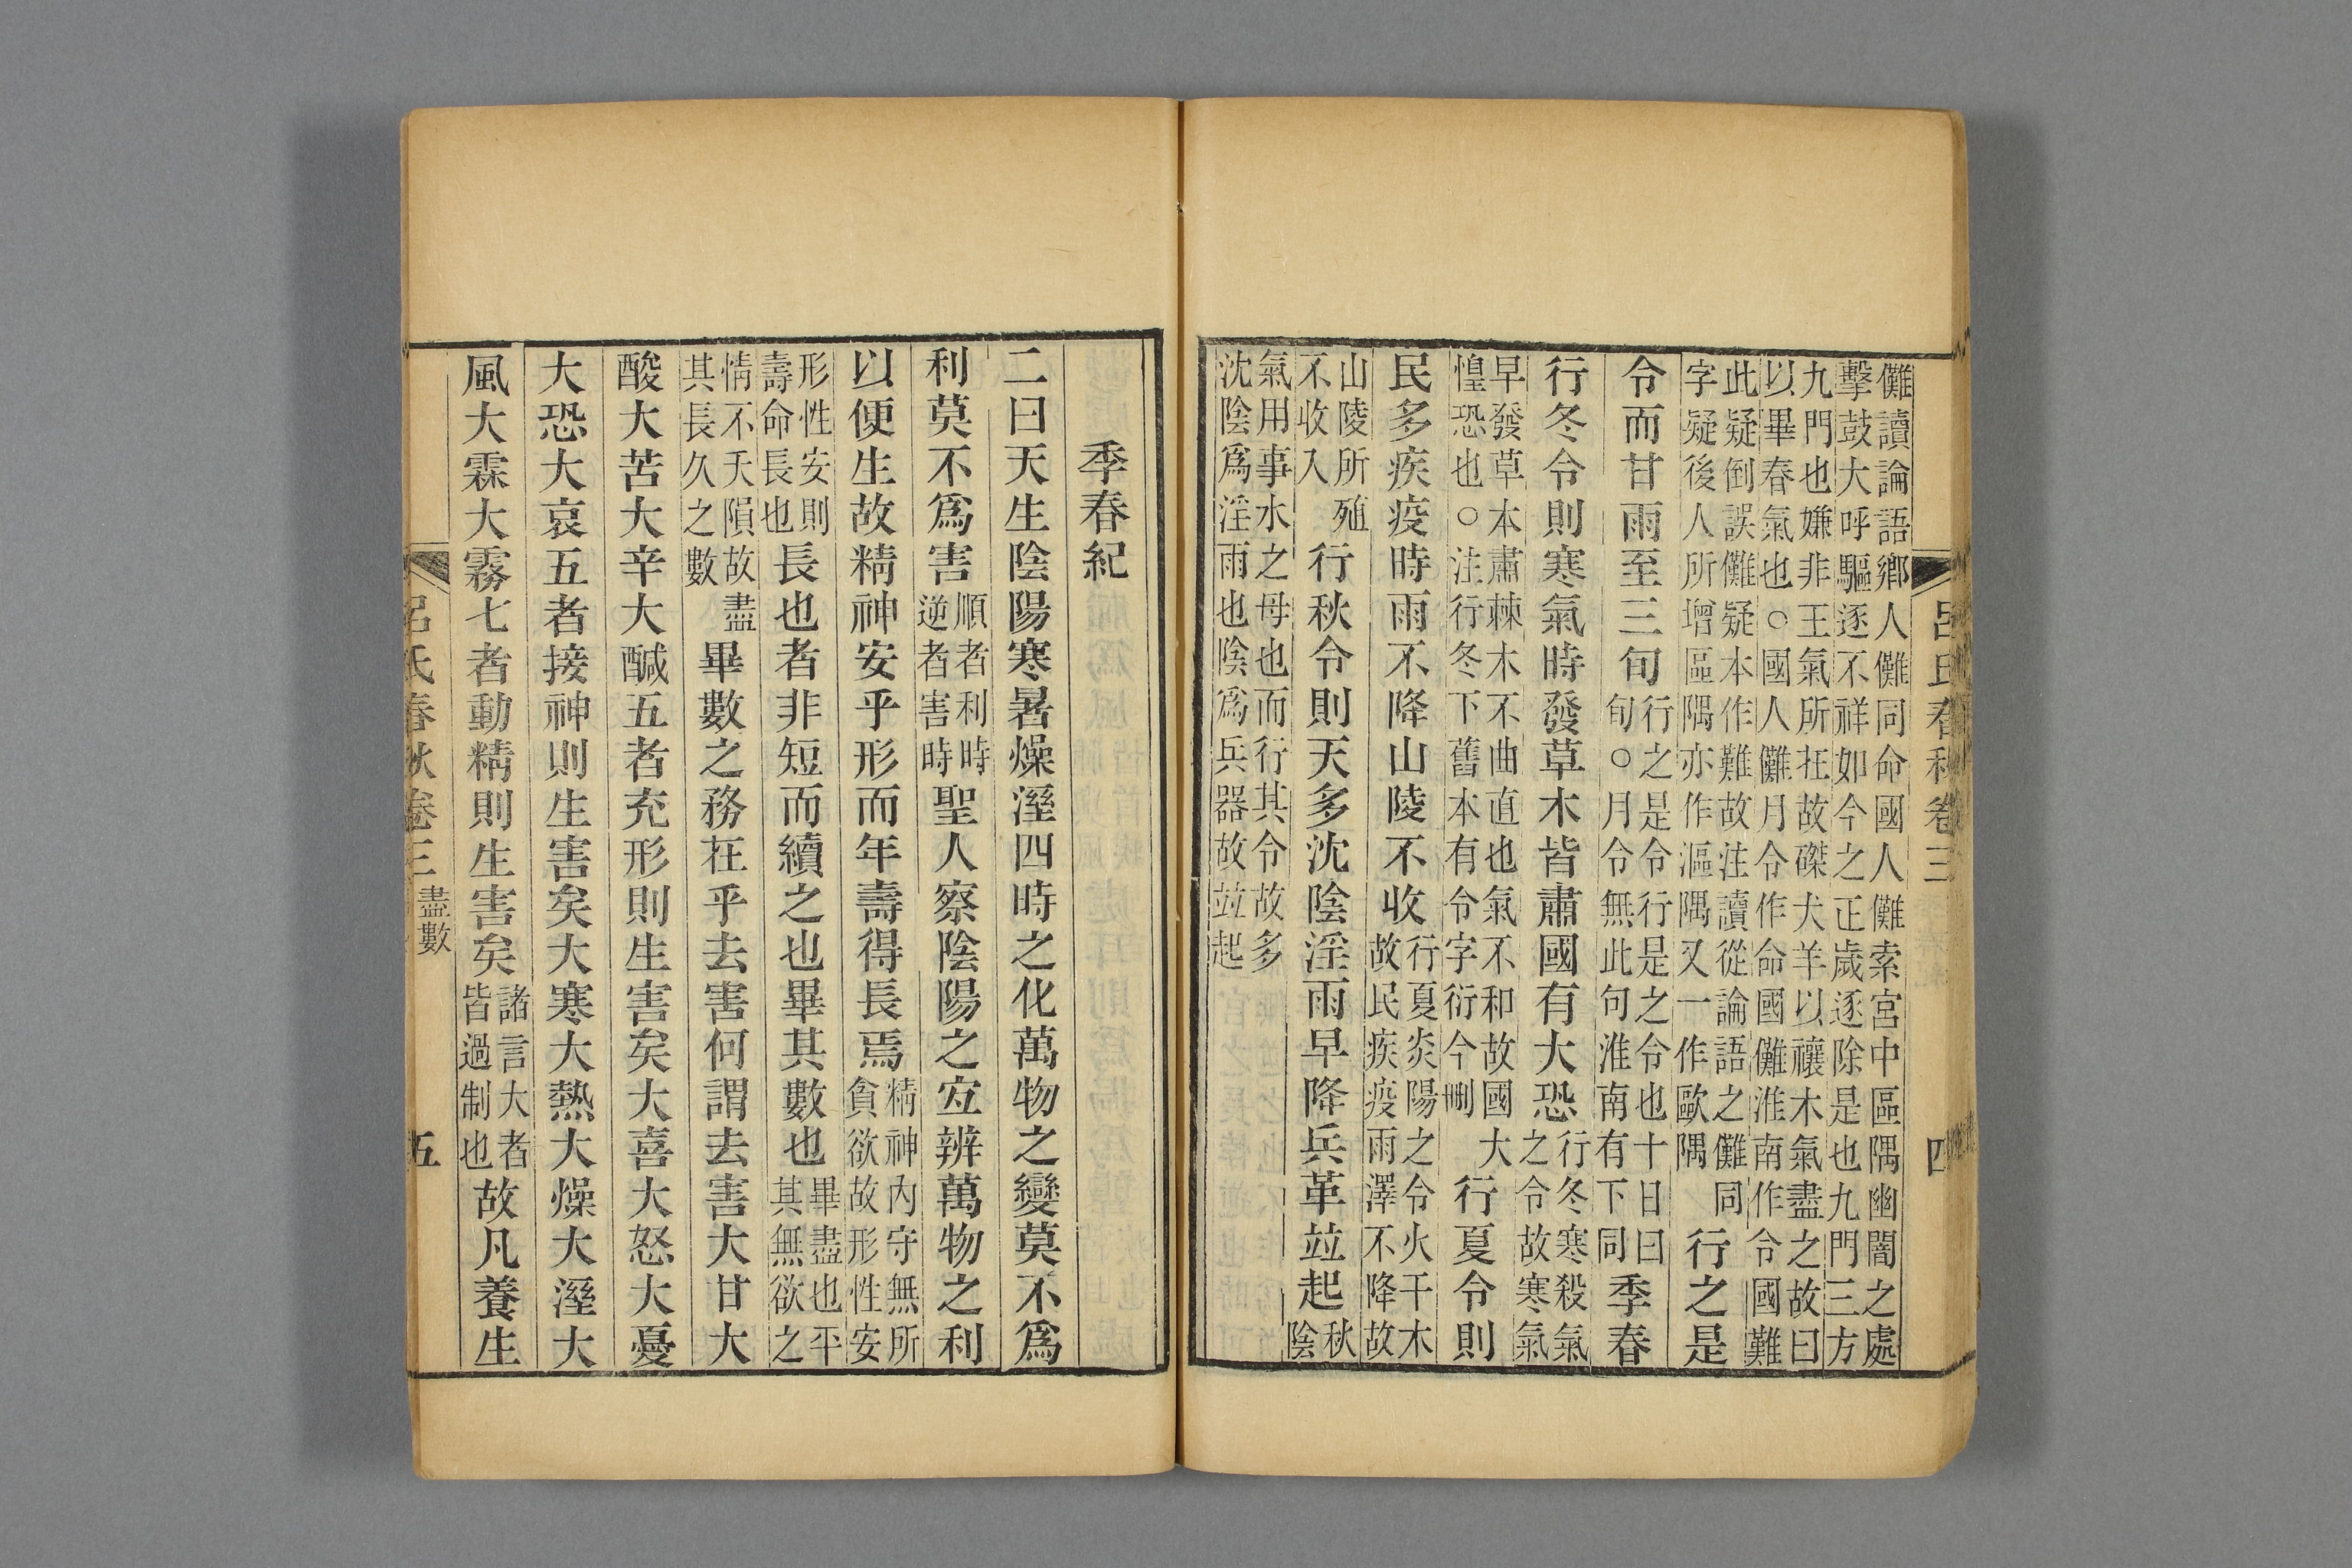 呂氏春秋卷三　四
儺讀論語鄉人儺同命國人儺索宮中區隅幽闇之處
擊鼓大呼驅逐不祥如今之正歲逐除是也九門三方
九門也嫌非王氣所在故磔犬羊以禳木氣盡之故曰
以畢春氣也○國人儺月令作命國儺淮南作令國難
此疑倒誤儺疑本作難故注讀從論語之儺同
字疑後人所增區隅亦作漚隅又一作歐隅
行之是
令而甘雨至三旬
行之是令行是之令也十日曰
旬○月令無此句淮南有下同
季春
行冬令則寒氣時發草木皆肅國有大恐
行冬寒殺氣
之令故寒氣
早發草本肅棘木不曲直也氣不和故國大
惶恐也○注行冬下舊本有令字衍今刪
行夏令則
民多疾疫時雨不降山陵不收
行夏炎陽之令火干木
故民疾疫雨澤不降故
山陵所殖
不收入
行秋令則天多沈陰淫雨早降兵革並起
秋
陰
氣用事水之母也而行其令故多
沈陰爲淫雨也陰爲兵器故並起
季春紀
二曰天生陰陽寒暑燥溼四時之化萬物之變莫不爲
利莫不爲害
順者利時
逆者害時
聖人察陰陽之宜辨萬物之利
以便生故精神安乎形而年壽得長焉
精神內守無所
貪欲故形性安
形性安則
壽命長也
長也者非短而續之也畢其數也
畢盡也平
其無欲之
情不夭隕故盡
其長久之數
畢數之務在乎去害何謂去害大甘大
酸大苦大辛大鹹五者充形則生害矣大喜大怒大憂
大恐大哀五者接神則生害矣大寒大熱大燥大溼大
風大霖大霧七者動精則生害矣
諸言大者
皆過制也
故凡養生
呂氏春秋卷三　盡數　五